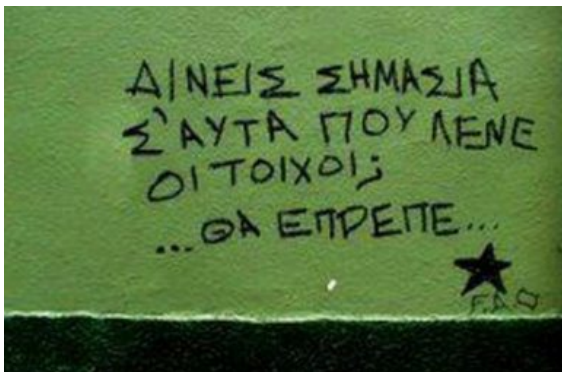 ΔΙΝΕΙΣ ΣΗΜΑΣΙΑ
Σ'ΑΥΤΑ ΠΟΥ ΛΕΝΕ
ΟΙ ΤΟΙΧΟΙ;
...ΘΑ ΕΠΡΕΠΕ...